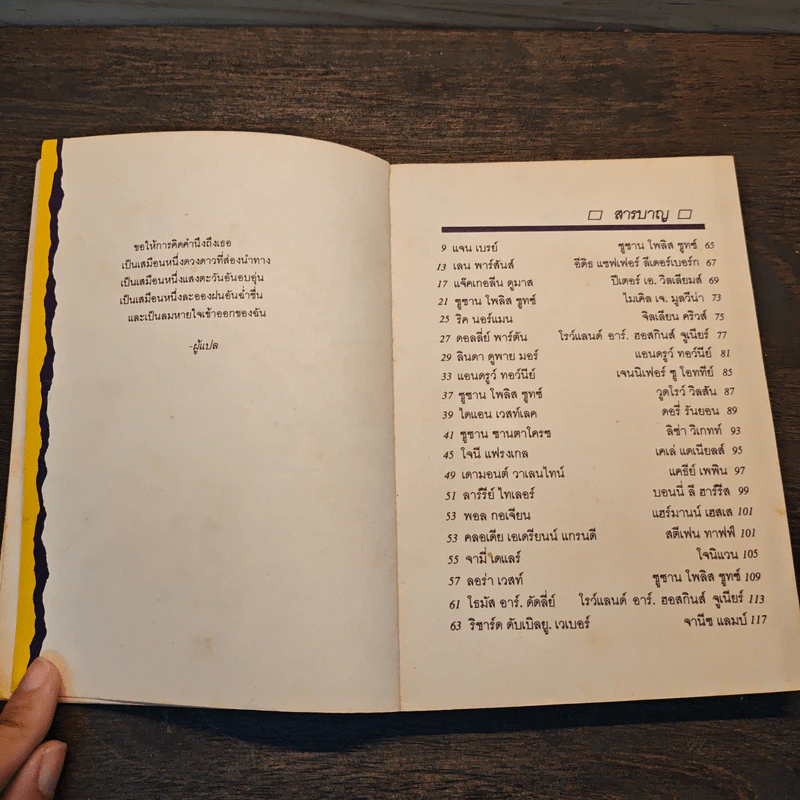 ขอให้การคิดคำนึงถึงเธอ
เป็นเสมือนหนึ่งดวงดาวที่ส่องนำทาง
เป็นเสมือนหนึ่งแสงตะวันอันอบอุ่น
เป็นเสมือนหนึ่งละอองฝนอันฉ่ำชื่น
และเป็นลมหายใจเข้าออกของฉัน
-ผู้แปล
สารบาญ
9 แจน เบรย์
13 เลน พาร์สันส์
17 แจ๊คเกอลีน ดูมาส
21 ซูซาน โพลิส ชูทซ์
25 ริค นอร์แมน
27 ดอลลี่ย์ พาร์ตัน
29 ลินดา ดูพาย มอร์
33 แอนดรูว์ ทอว์นีย์
37 ซูซาน โพลิส ชูทซ์
39 ไดแอน เวสท์เลค
41 ซูซาน ซานตาโครซ
45 โจนี แฟรงเกล
49 เดามอนต์ วาเลนไทน์
51 ลาร์รีย์ ไทเลอร์
53 พอล กอเจียน
53 คลอเดีย เอเดรียนน์ แกรนดี
55 จามี่ เดแลร์
57 ลอร่า เวสท์
61 โธมัส อาร์. ดัดลี่ย์
63 ริชาร์ด ดับเบิลยู. เวเบอร์
ซูซาน โพลิส ชูทซ์ 65
อีดิธ แชฟเฟอร์ ลีเดอร์เบอร์ก 67
ปีเตอร์ เอ. วิลเลียมส์ 69
ไมเคิล เจ. มูลวีน่า 73
จิลเลียน คริวส์ 75
โรว์แลนด์ อาร์. ฮอสกินส์ จูเนียร์ 77
แอนดรูว์ ทอว์นีย์ 81
เจนนิเฟอร์ ซู โอททีย์ 85
วูดโรว์ วิลสัน 87
ดอรี่ รันยอน 89
ลิซ่า วิเกทท์ 93
เคเล่ แดเนียลส์ 95
แคธีย์ เพพิน 97
บอนนี่ ลี ฮาร์รีส 99
แฮร์มานน์ เฮสเส 101
สตีเฟน ทาฟฟ์ 101
โจนิแวน 105
ซูซาน โพลิส ชูทซ์ 109
โรว์แลนด์ อาร์. ฮอสกินส์ จูเนียร์ 113
จานีซ แลมบ์ 117